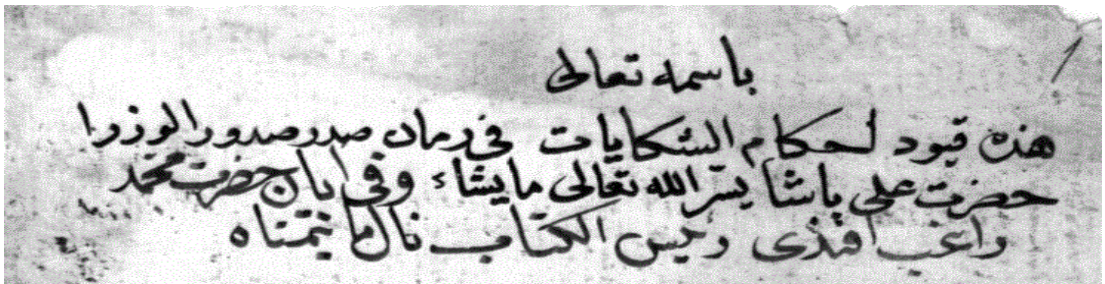 باسمه تعالى
هذه قيود لحكام الشكايات في زمان صدر صدور الوزرا
حضرت على پاشا يسر الله تعالى ما يشاء وفى ايام حضرت محمد
راغب افندى رئيس الكتاب نال ما يتمناه